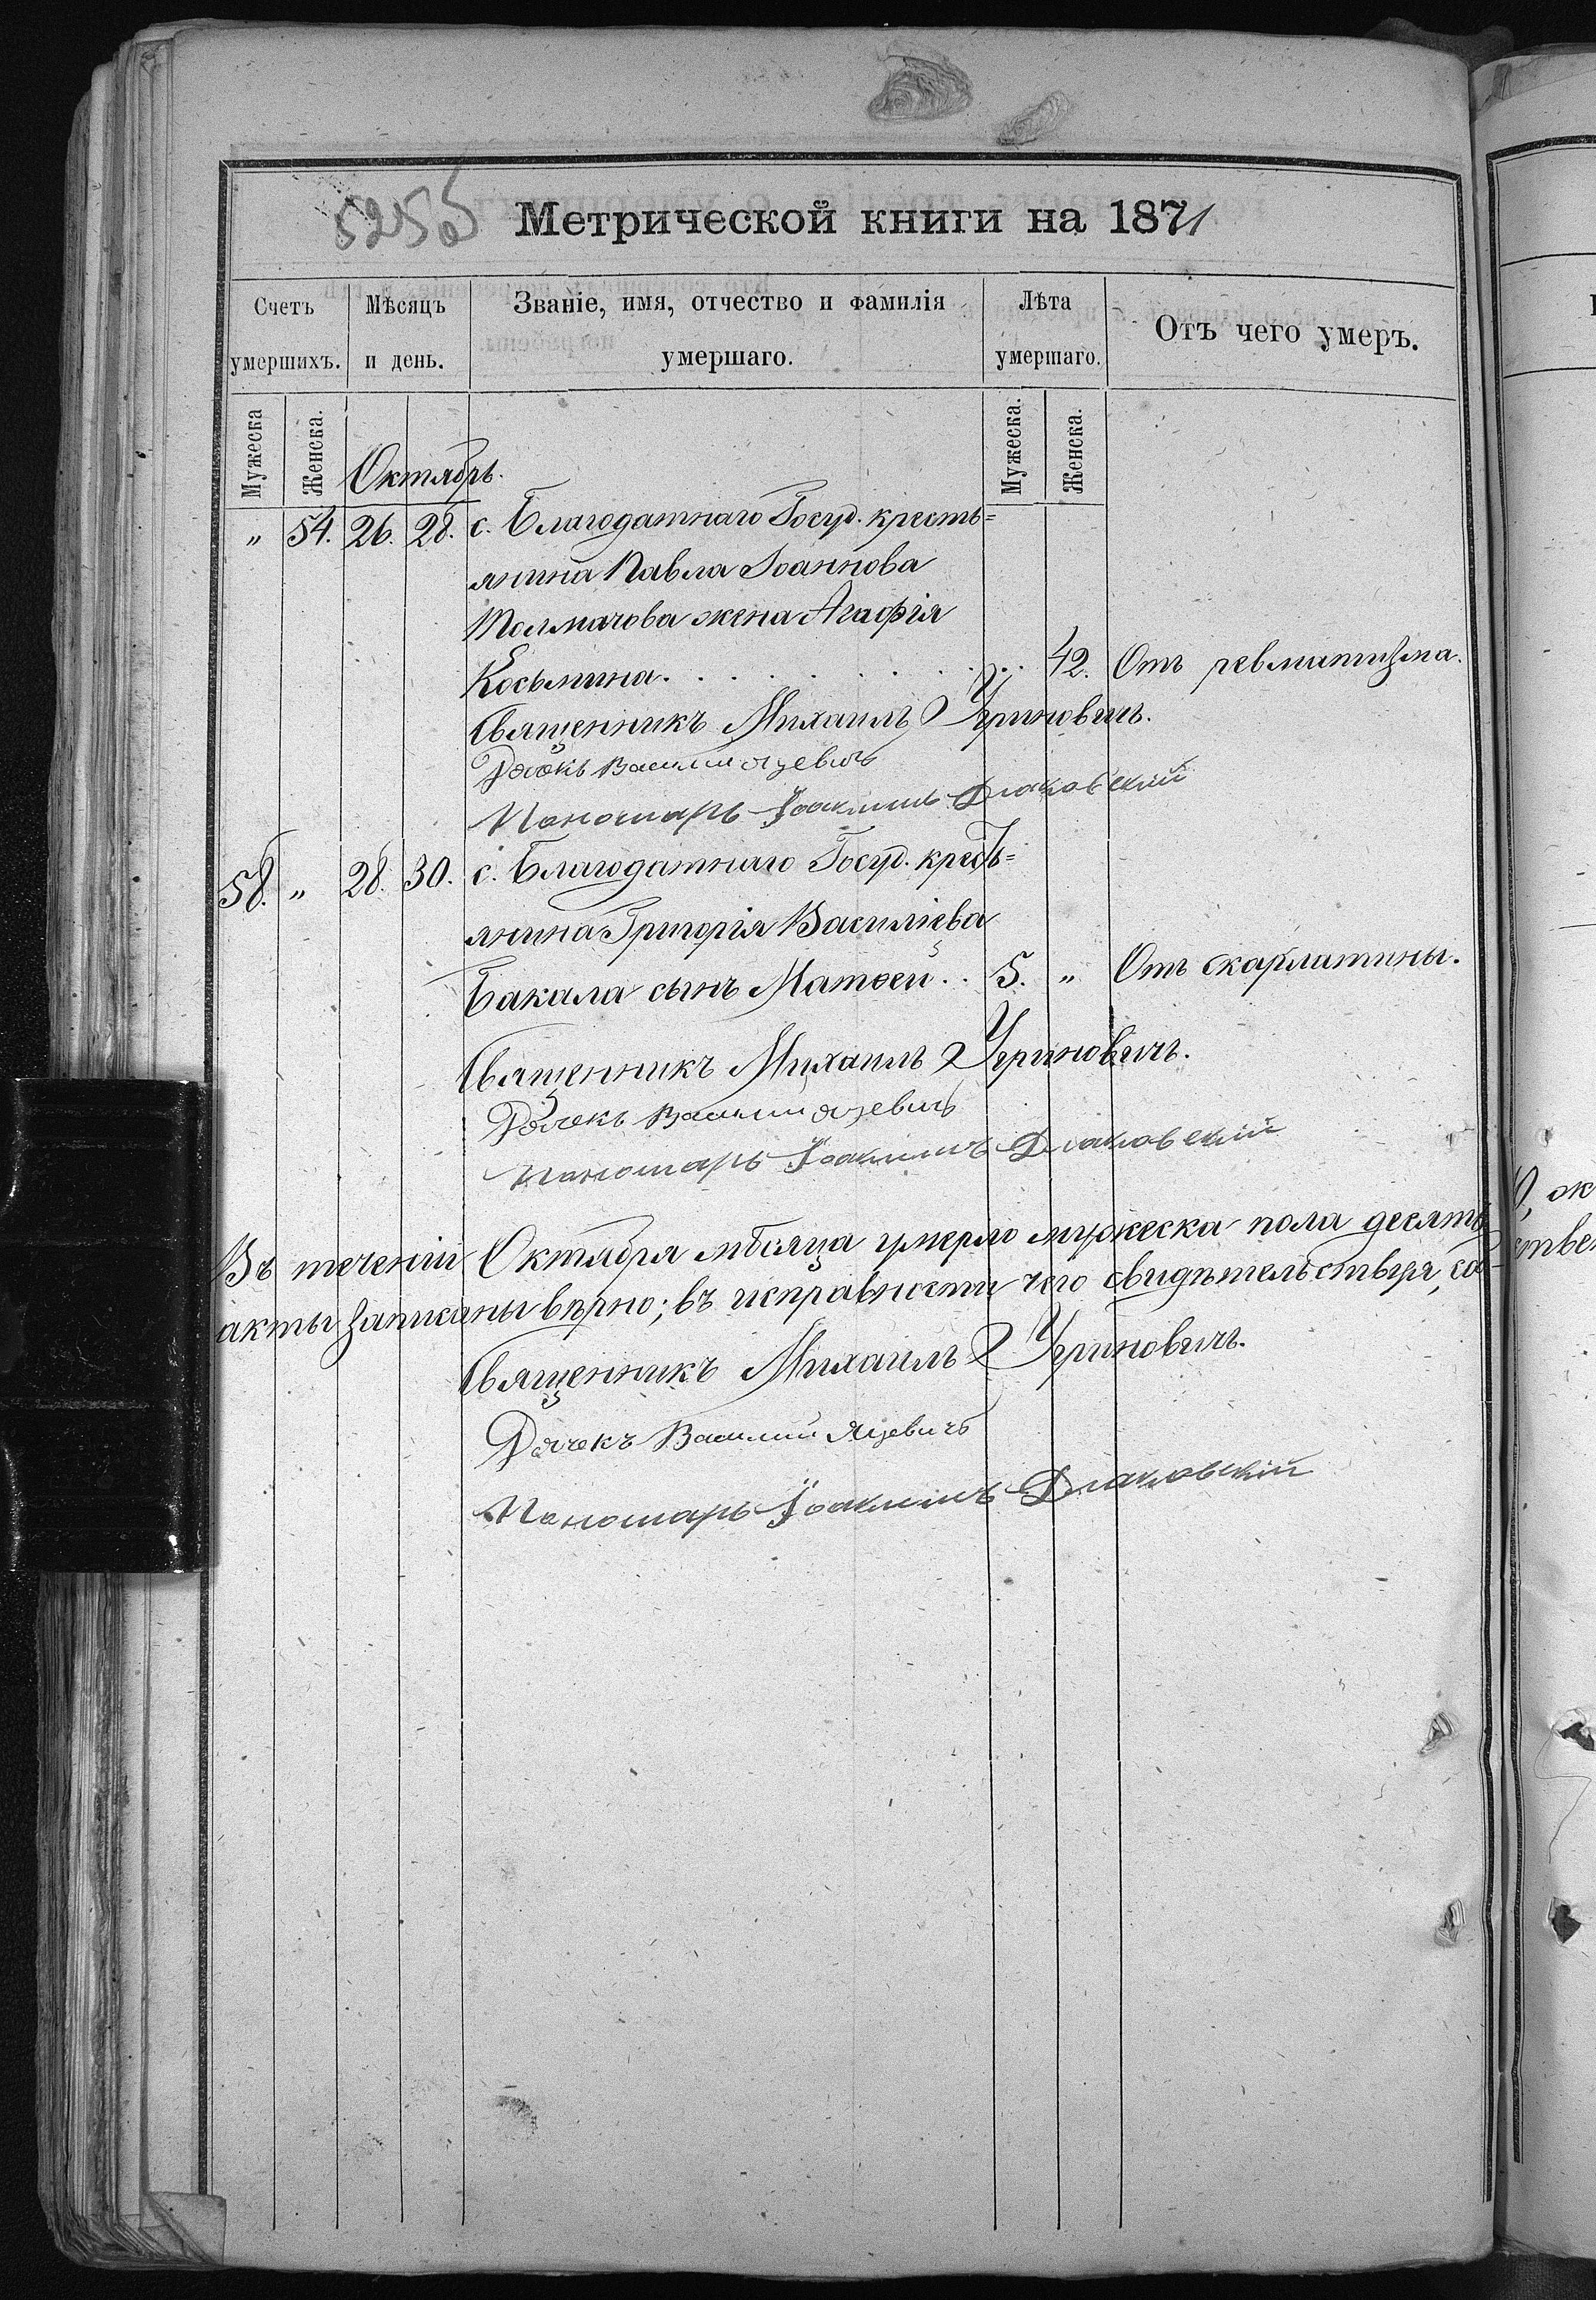 525об
Метрической книги на 1871
Счетъ умершихъ.
Мѣсяцъ и день.
Званіе, имя, отчество и фамилія умершаго.
Лѣта умершаго.
Отъ чего умеръ.
Мужеска
Женска.
Октябрь.
Мужеска.
Женска.
„ 54. 26. 28. с. Благодатнаго Госуд. кресть=
янина Павла Іоаннова
Толмачова жена Агафія
Косьмина. . . . . . . . . 42. Отъ ревматизма.
Священникъ Михаилъ Угриновичъ.
Дячекъ Василий Яцевичъ
Пономарь Іоакимъ Дьяковскій
58. „ 28. 30. с. Благодатнаго Госуд. кресть=
янина Григорія Василіева
Бакала сынъ Матѳей . . 5. „ Отъ скарлатины.
Священникъ Михаилъ Угриновичъ.
Дячекъ Василий Яцевичъ
Пономарь Іоакимъ Дьяковскій
Въ теченіи Октября мѣсяца умерло мужеска пола десять
акты записаны вѣрно; въ исправности чего свидѣтельствуя, со-
Священникъ Михаилъ Угриновичъ.
Дячекъ Василий Яцевичъ
Пономарь Іоакимъ Дьяковскій